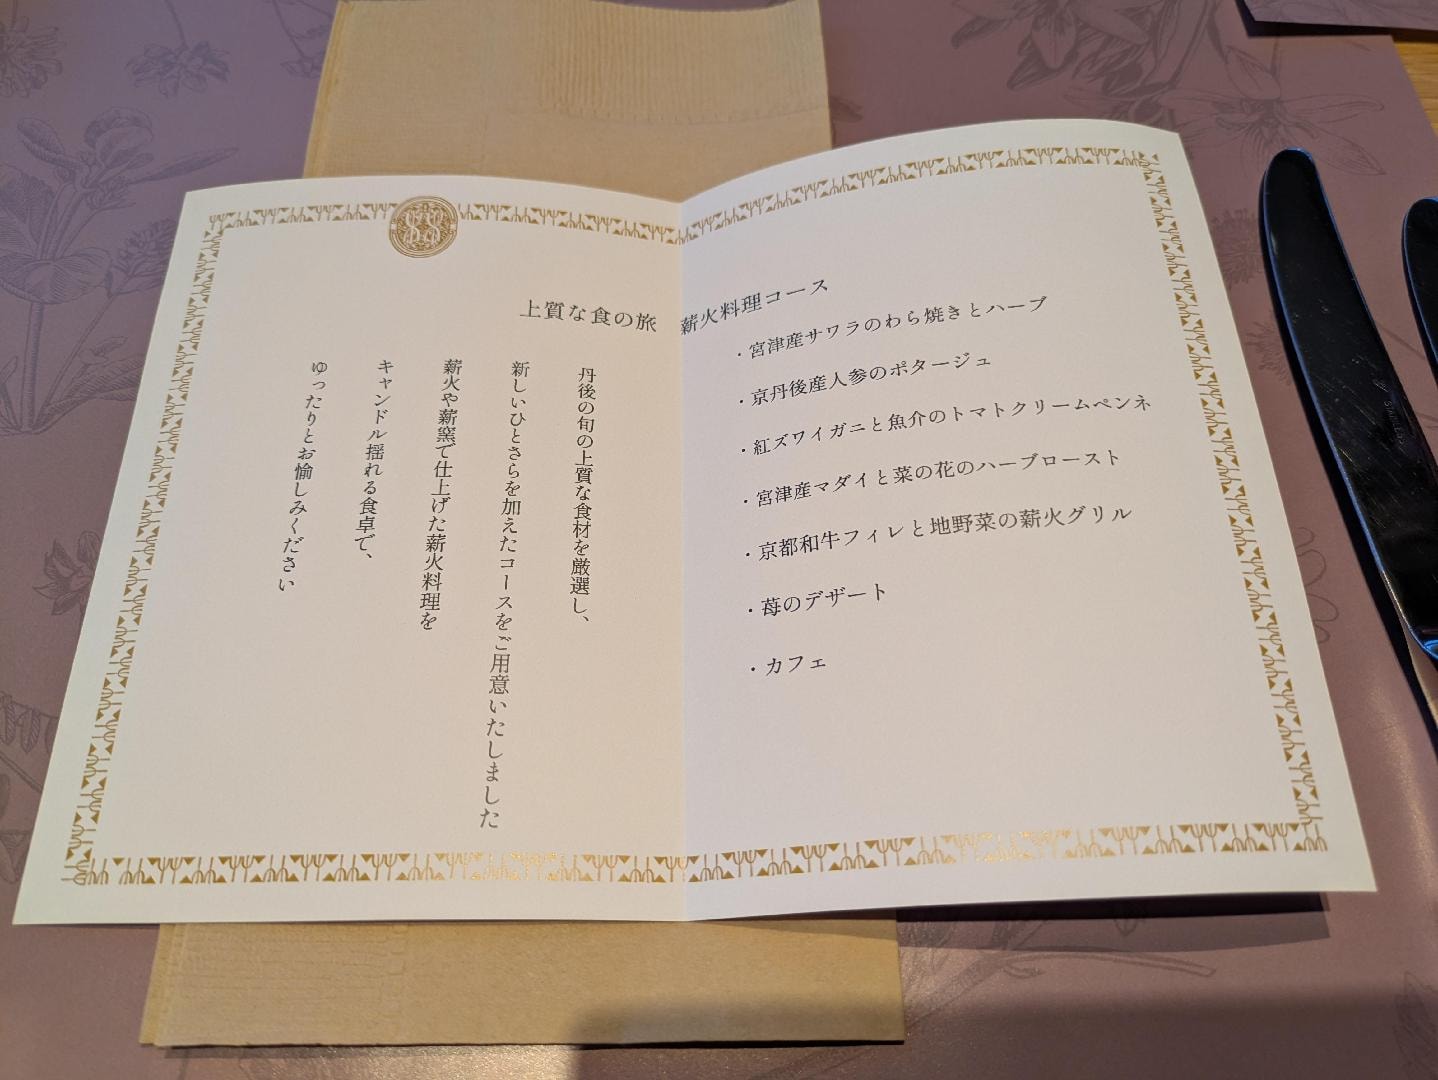 上質な食の旅　薪火料理コース
丹後の旬の上質な食材を厳選し、
新しいひとさらを加えたコースをご用意いたしました
薪火や薪窯で仕上げた薪火料理を
キャンドル揺れる食卓で、
ゆったりとお愉しみください
・宮津産サワラのわら焼きとハーブ
・京丹後産人参のポタージュ
・紅ズワイガニと魚介のトマトクリームペンネ
・宮津産マダイと菜の花のハーブロースト
・京都和牛フィレと地野菜の薪火グリル
・苺のデザート
・カフェ